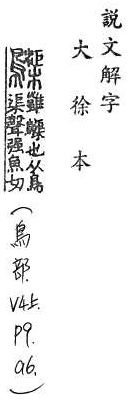 說文解字
大徐本
雝也从鳥
渠聲强魚切
(鳥部.V4上.P9.a6.)